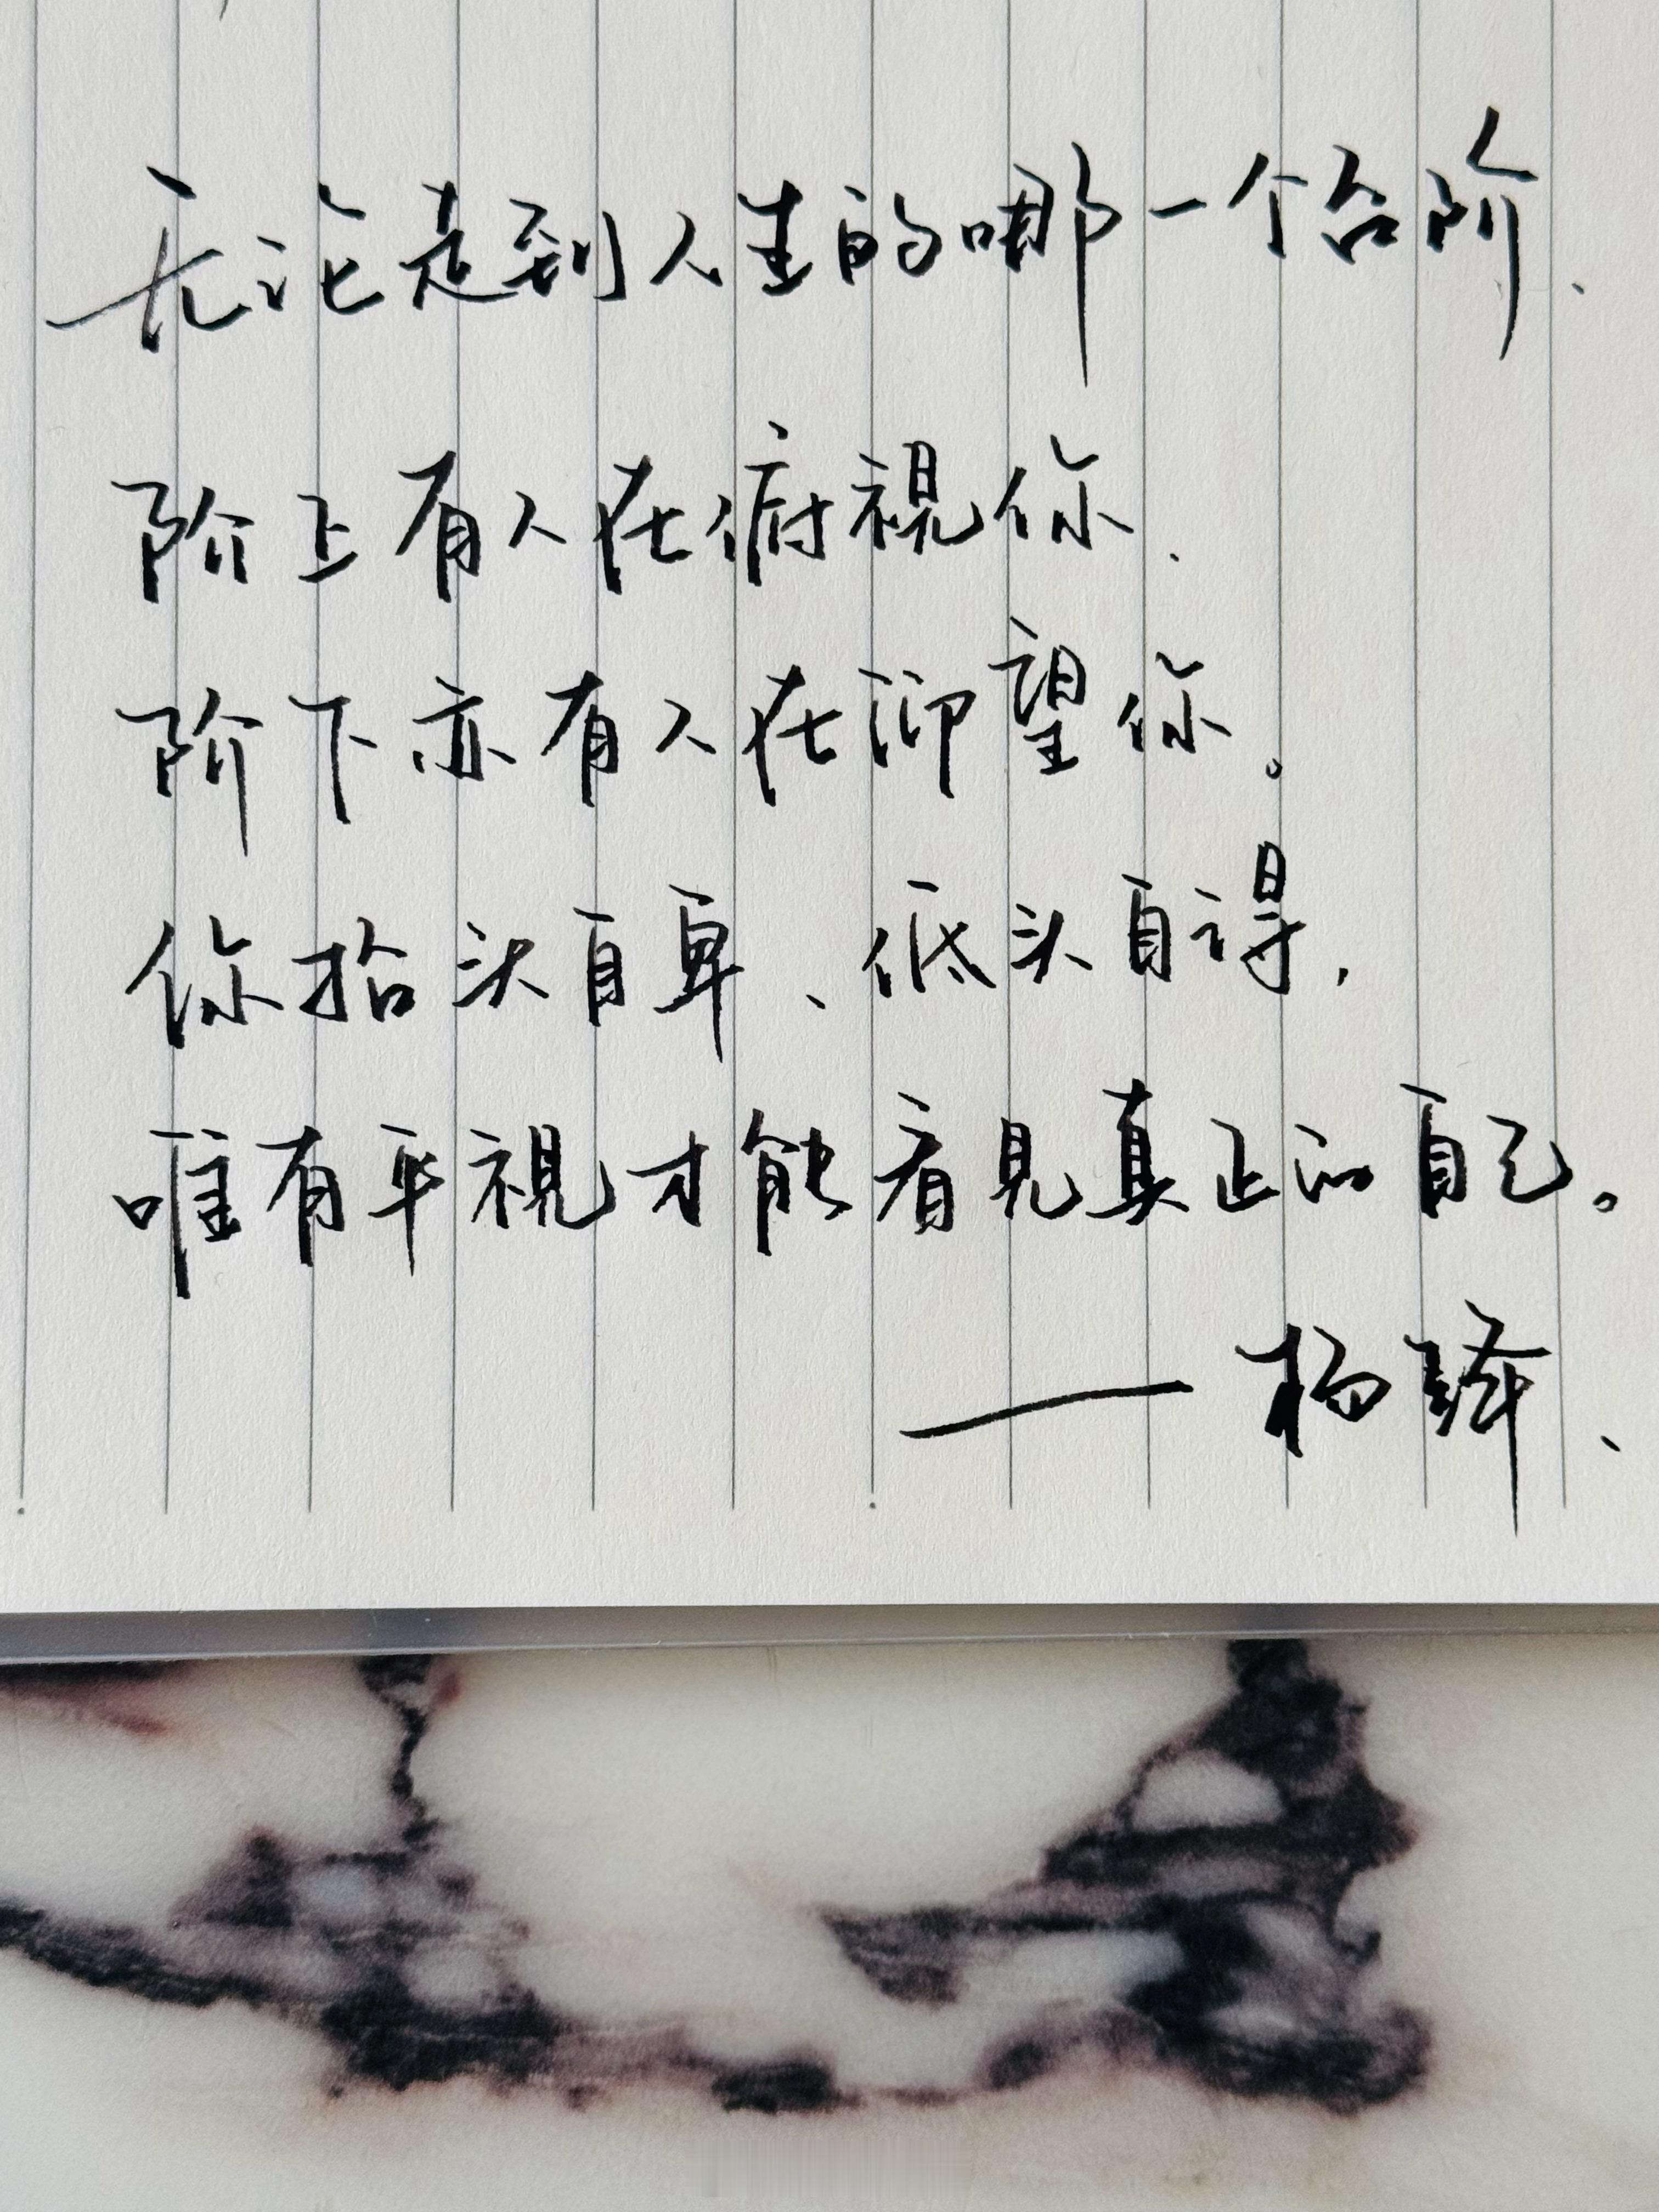 无论走到人生的哪一个台阶、
阶上有人在俯视你、
阶下亦有人在仰望你。
你抬头自卑、低头自得,
唯有平视才能看见真正的自己。
——杨绛、